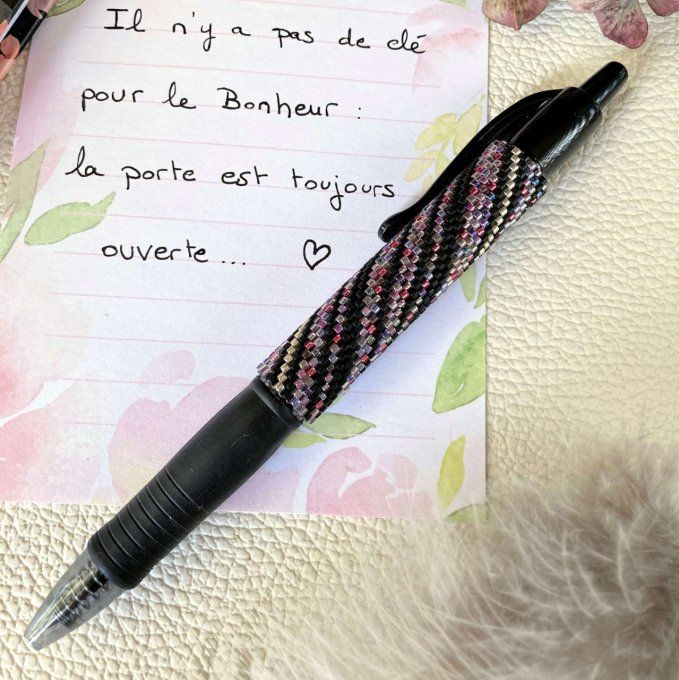 Il n'y a pas de clé
pour le Bonheur :
la porte est toujours
ouverte... ♡